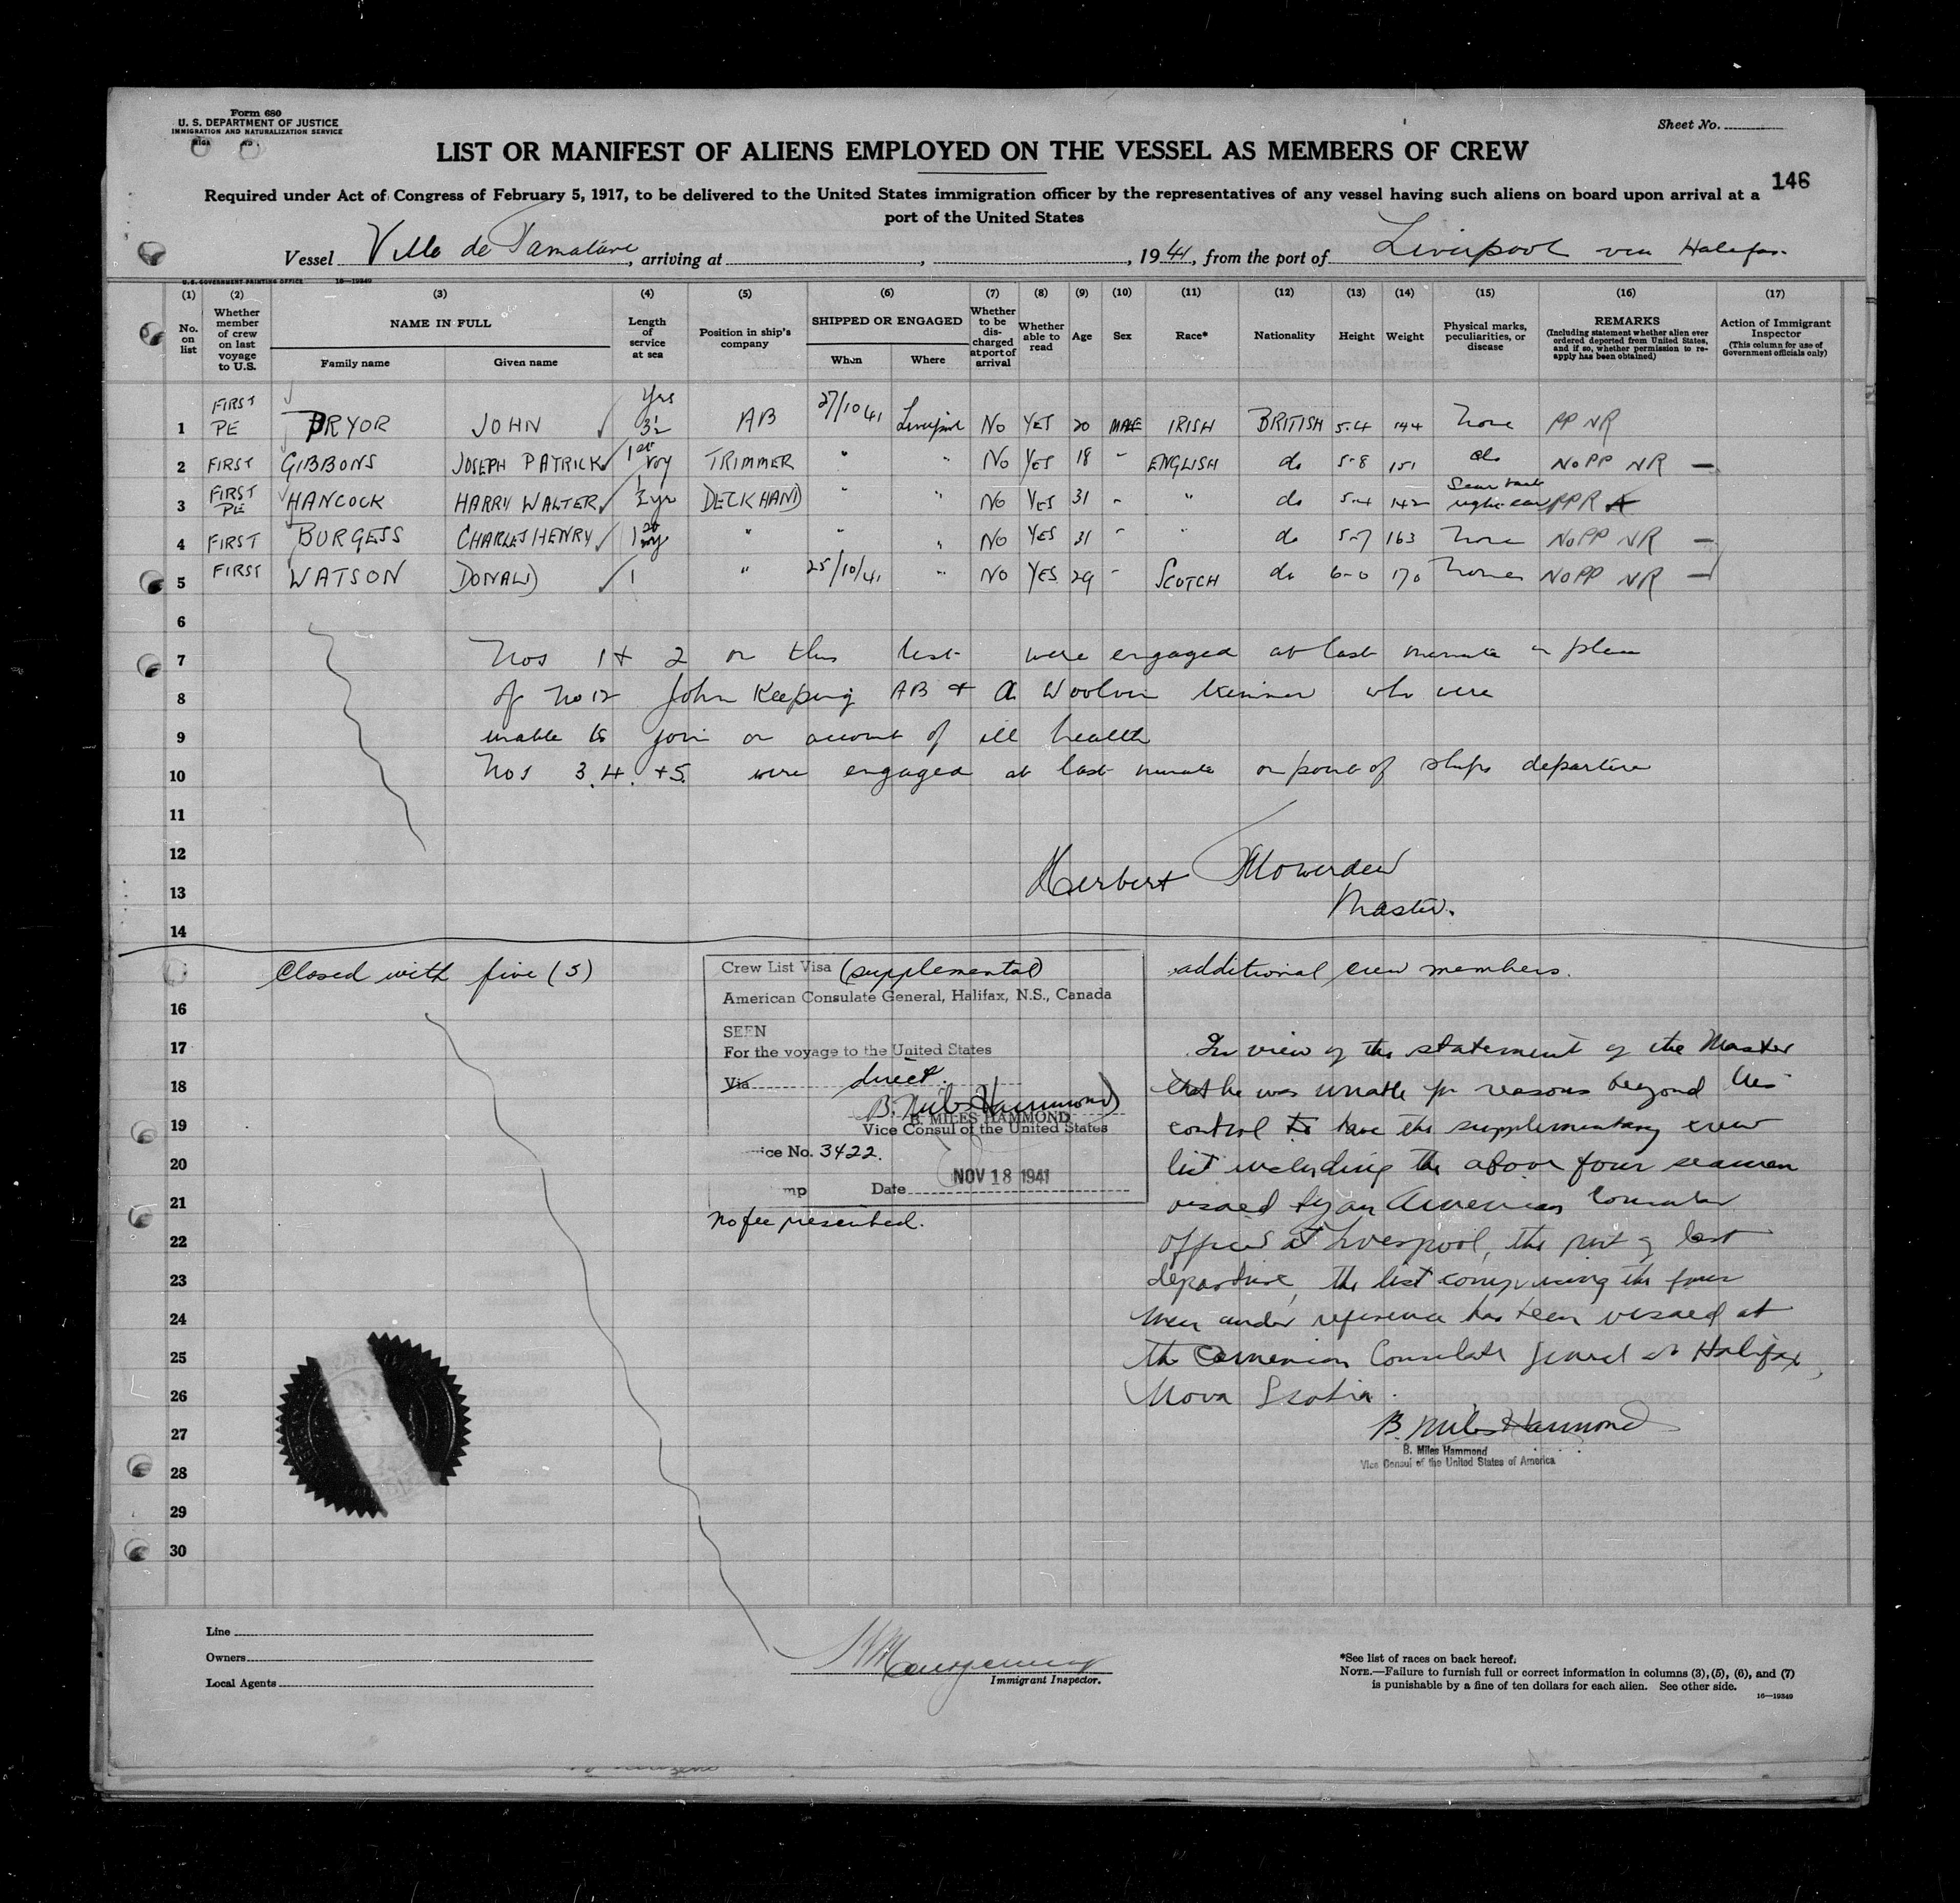 Form 680
U. S. DEPARTMENT OF JUSTICE
IMMIGRATION AND NATURALIZATION SERVICE
Sheet No.
LIST OR MANIFEST OF ALIENS EMPLOYED ON THE VESSEL AS MEMBERS OF CREW
146
Required under Act of Congress of February 5, 1917, to be delivered to the United States immigration officer by the representatives of any vessel having such aliens on board upon arrival at a
port of the United States
Vessel Ville de Tamatave, arriving at , , 1941, from the port of Liverpool via Halifax.
U. S. GOVERNMENT PRINTING OFFICE 16—19349
(1) (2) (3) (4) (5) (6) (7) (8) (9) (10) (11) (12) (13) (14) (15) (16) (17)
No. on list
Whether member of crew on last voyage to U.S.
NAME IN FULL
Family name
Given name
Length of service at sea
Position in ship's company
SHIPPED OR ENGAGED
When
Where
Whether to be discharged at port of arrival
Whether able to read
Age
Sex
Race*
Nationality
Height
Weight
Physical marks, peculiarities, or disease
REMARKS
(Including statement whether alien ever ordered deported from United States, and if so, whether permission to reapply has been obtained)
Action of Immigrant Inspector
(This column for use of Government officials only)
1 FIRST PE PRYOR JOHN Yrs 3½ AB 27/10/41 Liverpool NO YES 20 MALE IRISH BRITISH 5-4 144 None PP NR
2 FIRST GIBBONS JOSEPH PATRICK 1st voy TRIMMER " " NO YES 18 " ENGLISH do 5-8 151 do NO PP NR —
3 FIRST PE HANCOCK HARRY WALTER ½ yr DECKHAND " " NO YES 31 " " do 5-4 142 Scar back right ear PPR
4 FIRST BURGESS CHARLES HENRY 1st voy " " " NO YES 31 " " do 5-7 163 None NO PP NR —
5 FIRST WATSON DONALD 1 " 25/10/41 " NO YES 29 " SCOTCH do 6-0 170 None NO PP NR —
6
7 Nos 1 + 2 on this list were engaged at last minute in place
8 of No 12 John Keeping AB + A Woolven trimmer who were
9 unable to join on account of ill health
10 Nos 3, 4, + 5 were engaged at last minute on point of ships departure
11
12
13 Herbert Flowerdew
Master.
14
Closed with five (5)
additional crew members.
Crew List Visa (supplemental)
American Consulate General, Halifax, N.S., Canada
16
SEEN
17 For the voyage to the United States
18 Via direct.
B. Miles Hammond
19 B. MILES HAMMOND
Vice Consul of the United States
20 ice No. 3422.
21 mp Date NOV 18 1941
No fee prescribed.
In view of the statement of the Master
that he was unable for reasons beyond his
control to have the supplementary crew
list including the above four seamen
visaed by an American Consular
22 officer at Liverpool, the port of last
23 departure, the list comprising the four
24 men under reference has been visaed at
25 the American Consulate General at Halifax,
26 Nova Scotia.
27 B. Miles Hammond
B. Miles Hammond
28 Vice Consul of the United States of America
29
30
Line
Owners
Local Agents
Immigrant Inspector.
*See list of races on back hereof.
NOTE.—Failure to furnish full or correct information in columns (3), (5), (6), and (7)
is punishable by a fine of ten dollars for each alien. See other side.
16—19349